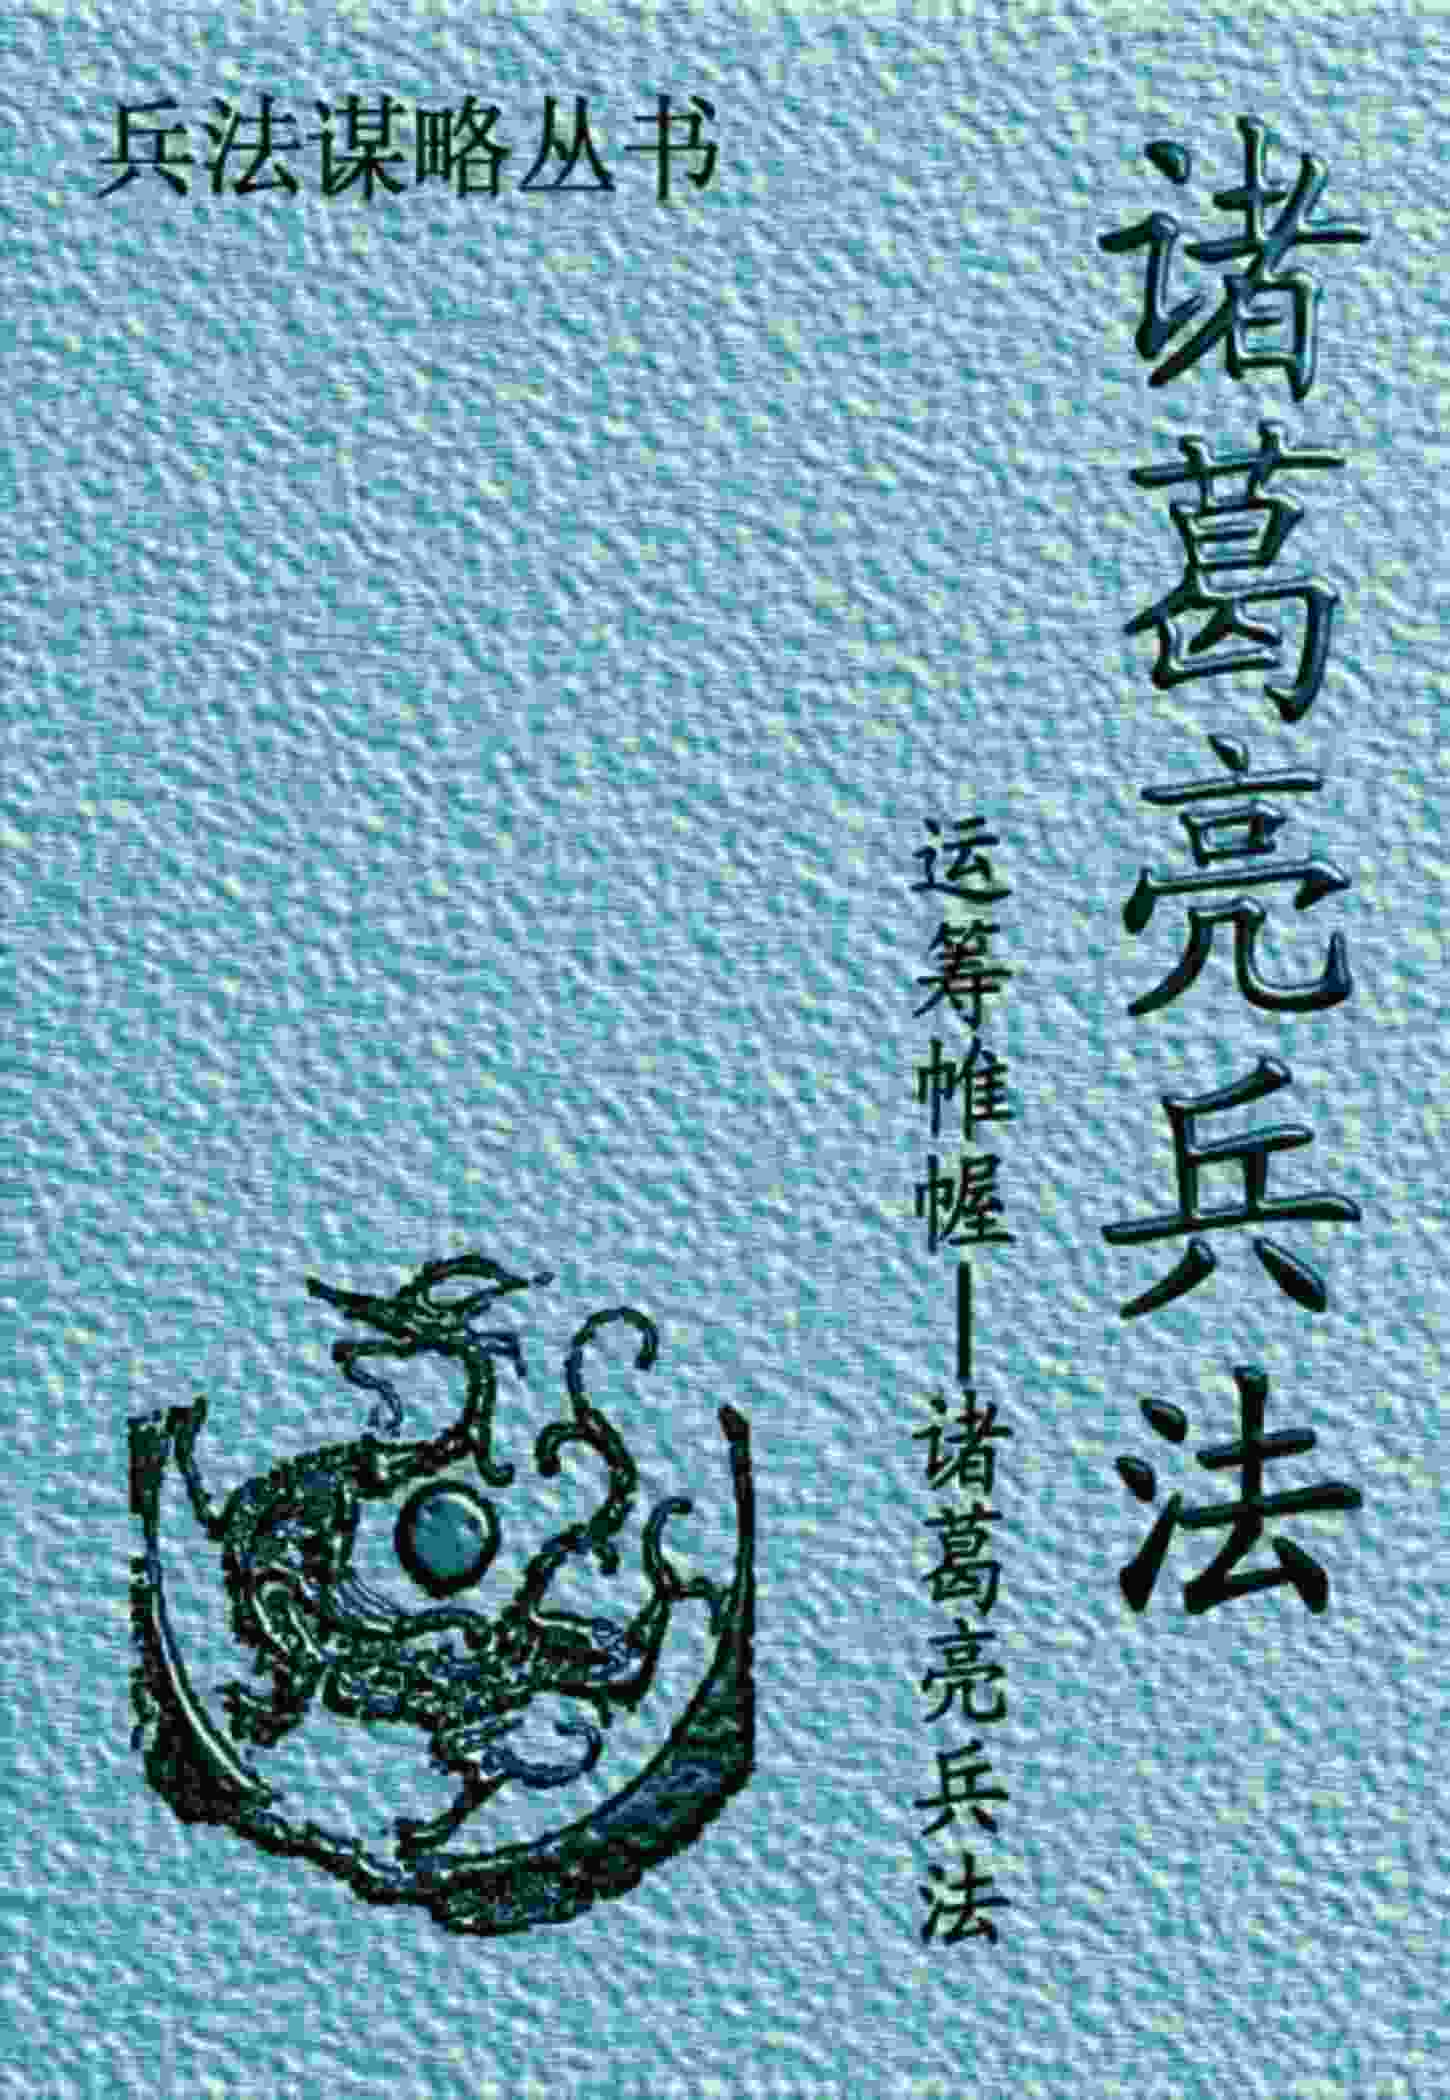 兵法谋略丛书
诸葛亮兵法
运筹帷幄—诸葛亮兵法